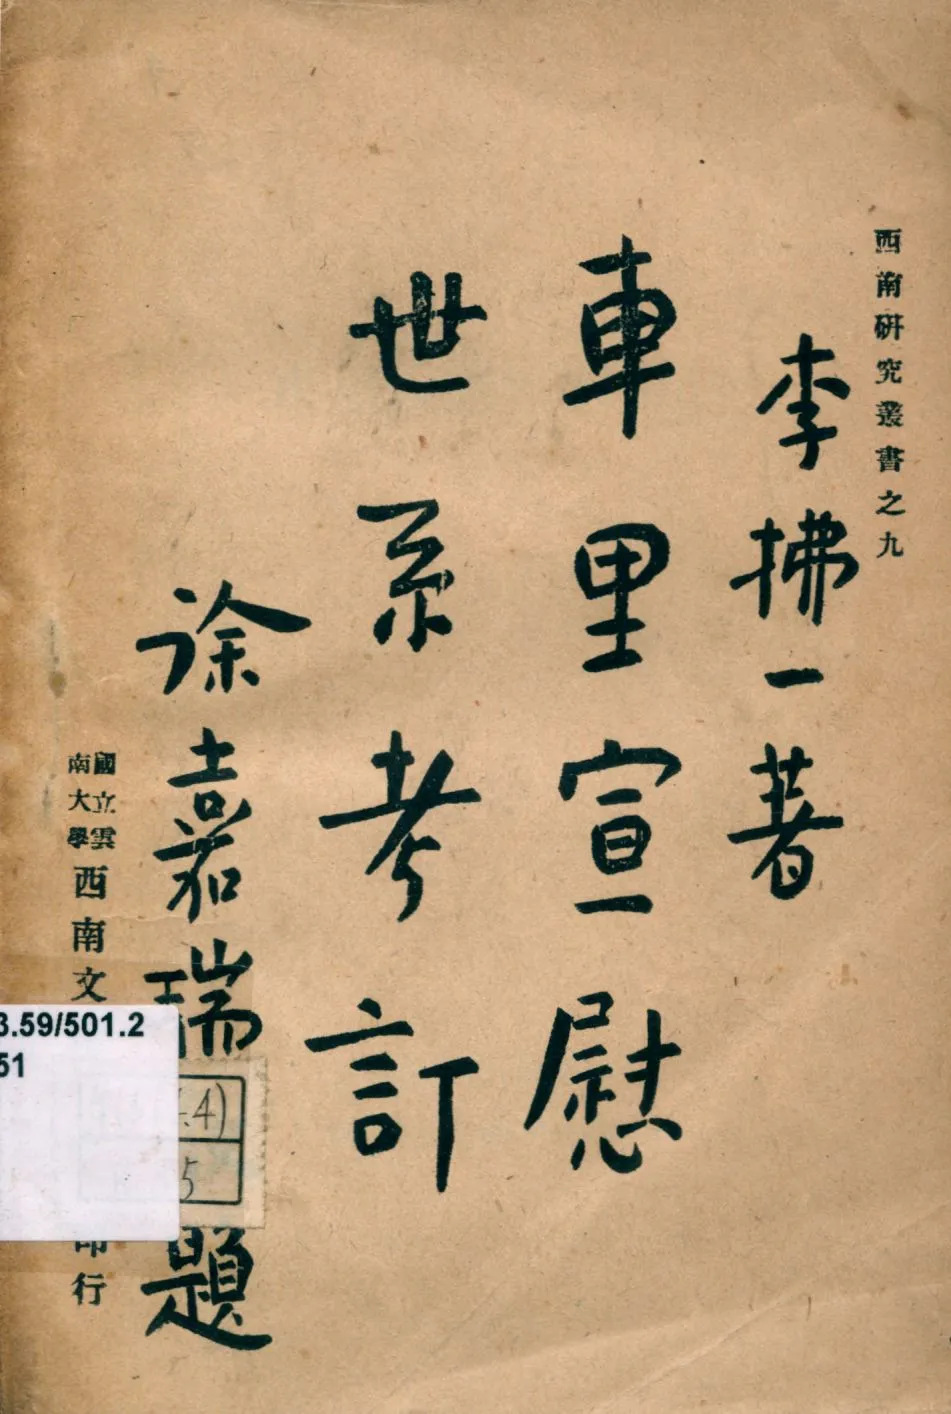 西南研究叢書之九
李拂一著
車里宣慰
世系考訂
徐嘉瑞
題
國立雲
南大學
西南文
印行
3.59/501.2
51
.4)
5